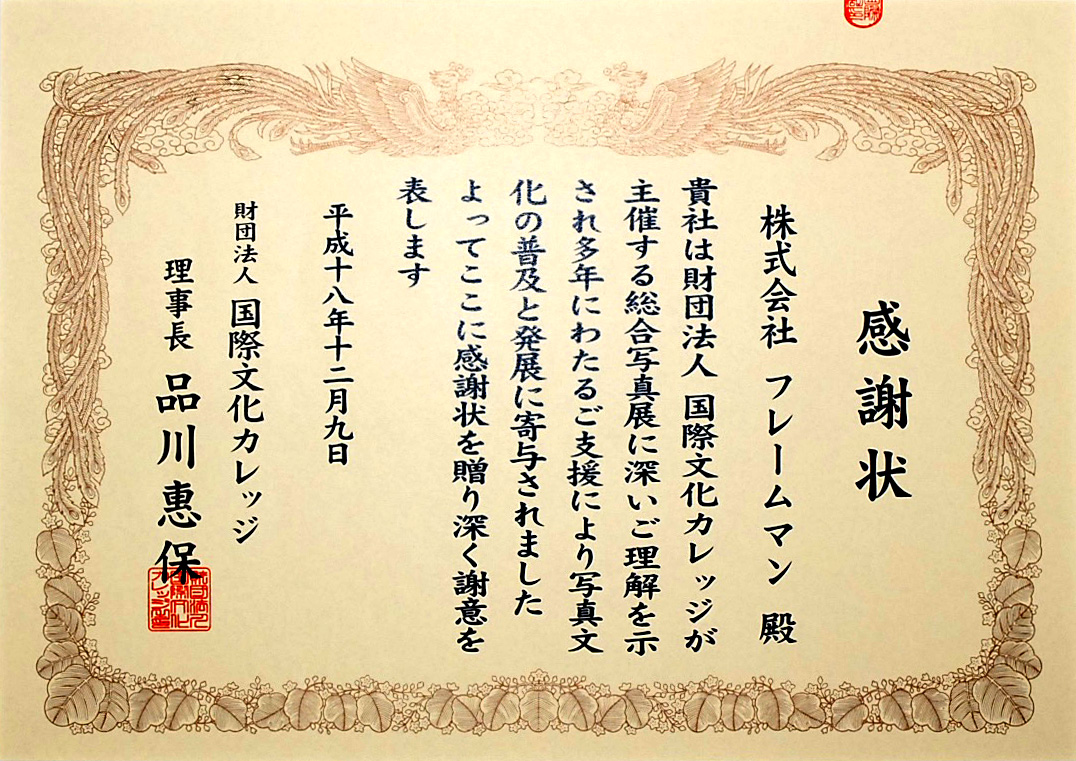 感謝状
株式会社 フレームマン 殿
貴社は財団法人 国際文化カレッジが
主催する総合写真展に深いご理解を示
され多年にわたるご支援により写真文
化の普及と発展に寄与されました
よってここに感謝状を贈り深く謝意を
表します
平成十八年十二月九日
財団法人 国際文化カレッジ
理事長 品川惠保